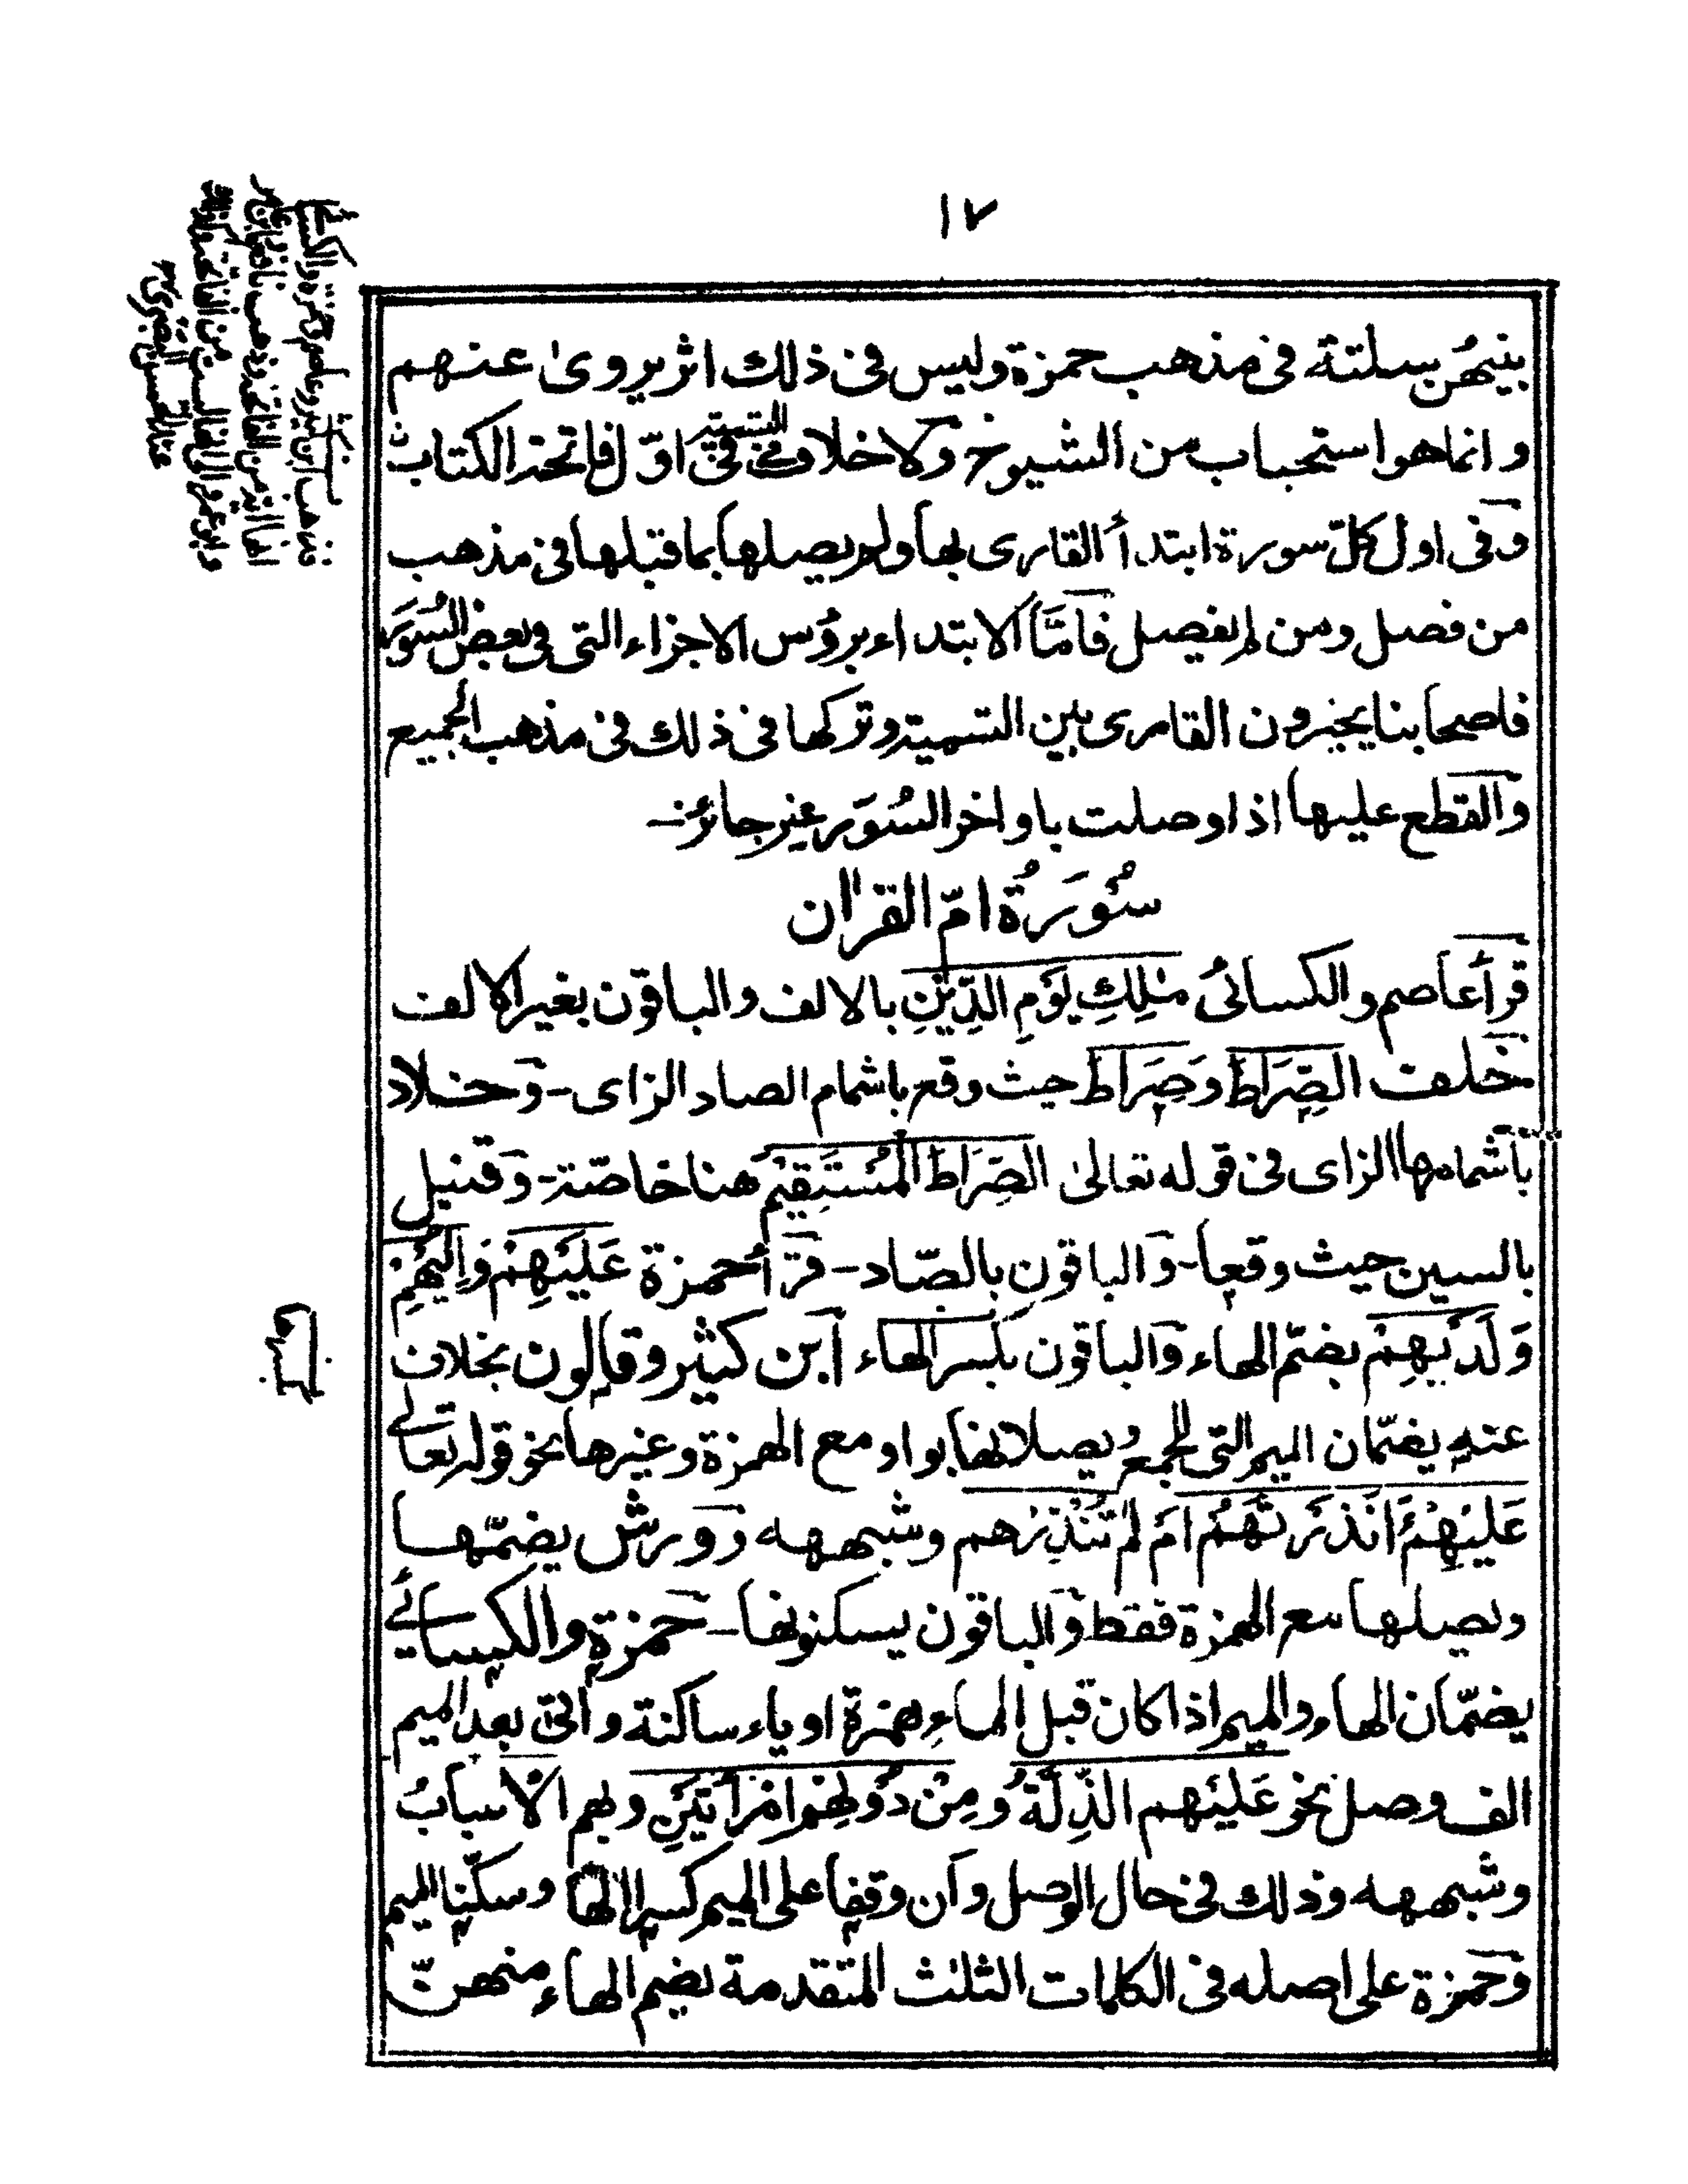 ١٧
بينهن بسكتة فى مذهب حمزة وليس فى ذلك اثر يروىٰ عنهم
وانما هو استحباب من الشيوخ ولا خلاف فى التسمية فى اوّل فاتحة الكتاب
وفى اول كلّ سورة ابتدأ القارى بها ولم يصلها بما قبلها فى مذهب
من فصل ومن لم يفصل فامّا الابتداء برؤس الاجزاء التى فى بعض السُوَر
فاصحابنا يخيرون القارى بين التسمية وتركها فى ذلك فى مذهب الجميع
والقطع عليها اذا وصلت باواخر السُوَر غير جائز-
سُوْرَةُ امّ القرٰان
قرأ عاصم والكسائىُ مٰلِكِ يَوْمِ الدِّيْنِ بالالف والباقون بغير الالف
خلف الصِّرَاطَ وَصِرَاطَ حيث وقع باشمام الصاد الزاى- وخلاد
باشمامها الزاى فى قوله تعالىٰ الصِّرَاطَ الْمُسْتَقِيْمَ هنا خاصّة- وقنبل
بالسين حيث وقعا- والباقون بالصّاد- قرأ حمزة عَلَيْهِمْ وَاِلَيْهِمْ
وَلَدَيْهِمْ بضمّ الهاء والباقون بكسر الهاء ابن كثير وقالون بخلاف
عنه يضمّان الميم التى للجمع ويصلانها بواو مع الهمزة وغيرها نحو قوله تعالىٰ
عَلَيْهِمْ ءَاَنْذَرْتَهُمْ اَمْ لَمْ تُنْذِرْهم وشبهه وورش يضمّها
ويصلها مع الهمزة فقط والباقون يسكنونها- حمزة والكسائى
يضمّان الهاء والميم اذا كان قبل الهاء همزة او ياء ساكنة واتى بعد الميم
الف وصل نحو عَلَيْهم الذِّلَّةُ ومِنْ دُوْنِهِمُ امْرَأتَيْنِ وبهم الاسبابُ
وشبهه وذلك فى حال الوصل وان وقفا على الميم كسرا الها وسكّنا الميم
وحمزة على اصله فى الكلمات الثلث المتقدمة بضم الهاء منهنّ